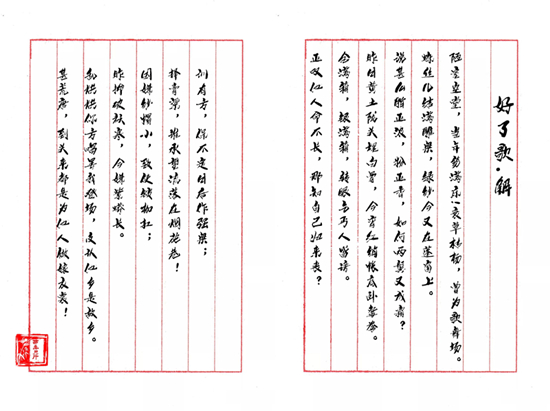 好了歌·解
陋室空堂，当年笏满床；衰草枯杨，曾为歌舞场。
蛛丝儿结满雕梁，绿纱今又在蓬窗上。
说甚么脂正浓，粉正香，如何两鬓又成霜？
昨日黄土陇头埋白骨，今宵红绡帐底卧鸳鸯。
金满箱，银满箱，转眼乞丐人皆谤。
正叹他人命不长，那知自己归来丧？
训有方，保不定日后作强梁；
择膏粱，谁承望流落在烟花巷！
因嫌纱帽小，致使锁枷扛；
昨怜破袄寒，今嫌紫蟒长。
乱烘烘你方唱罢我登场，反认他乡是故乡。
甚荒唐，到头来都是为他人做嫁衣裳！